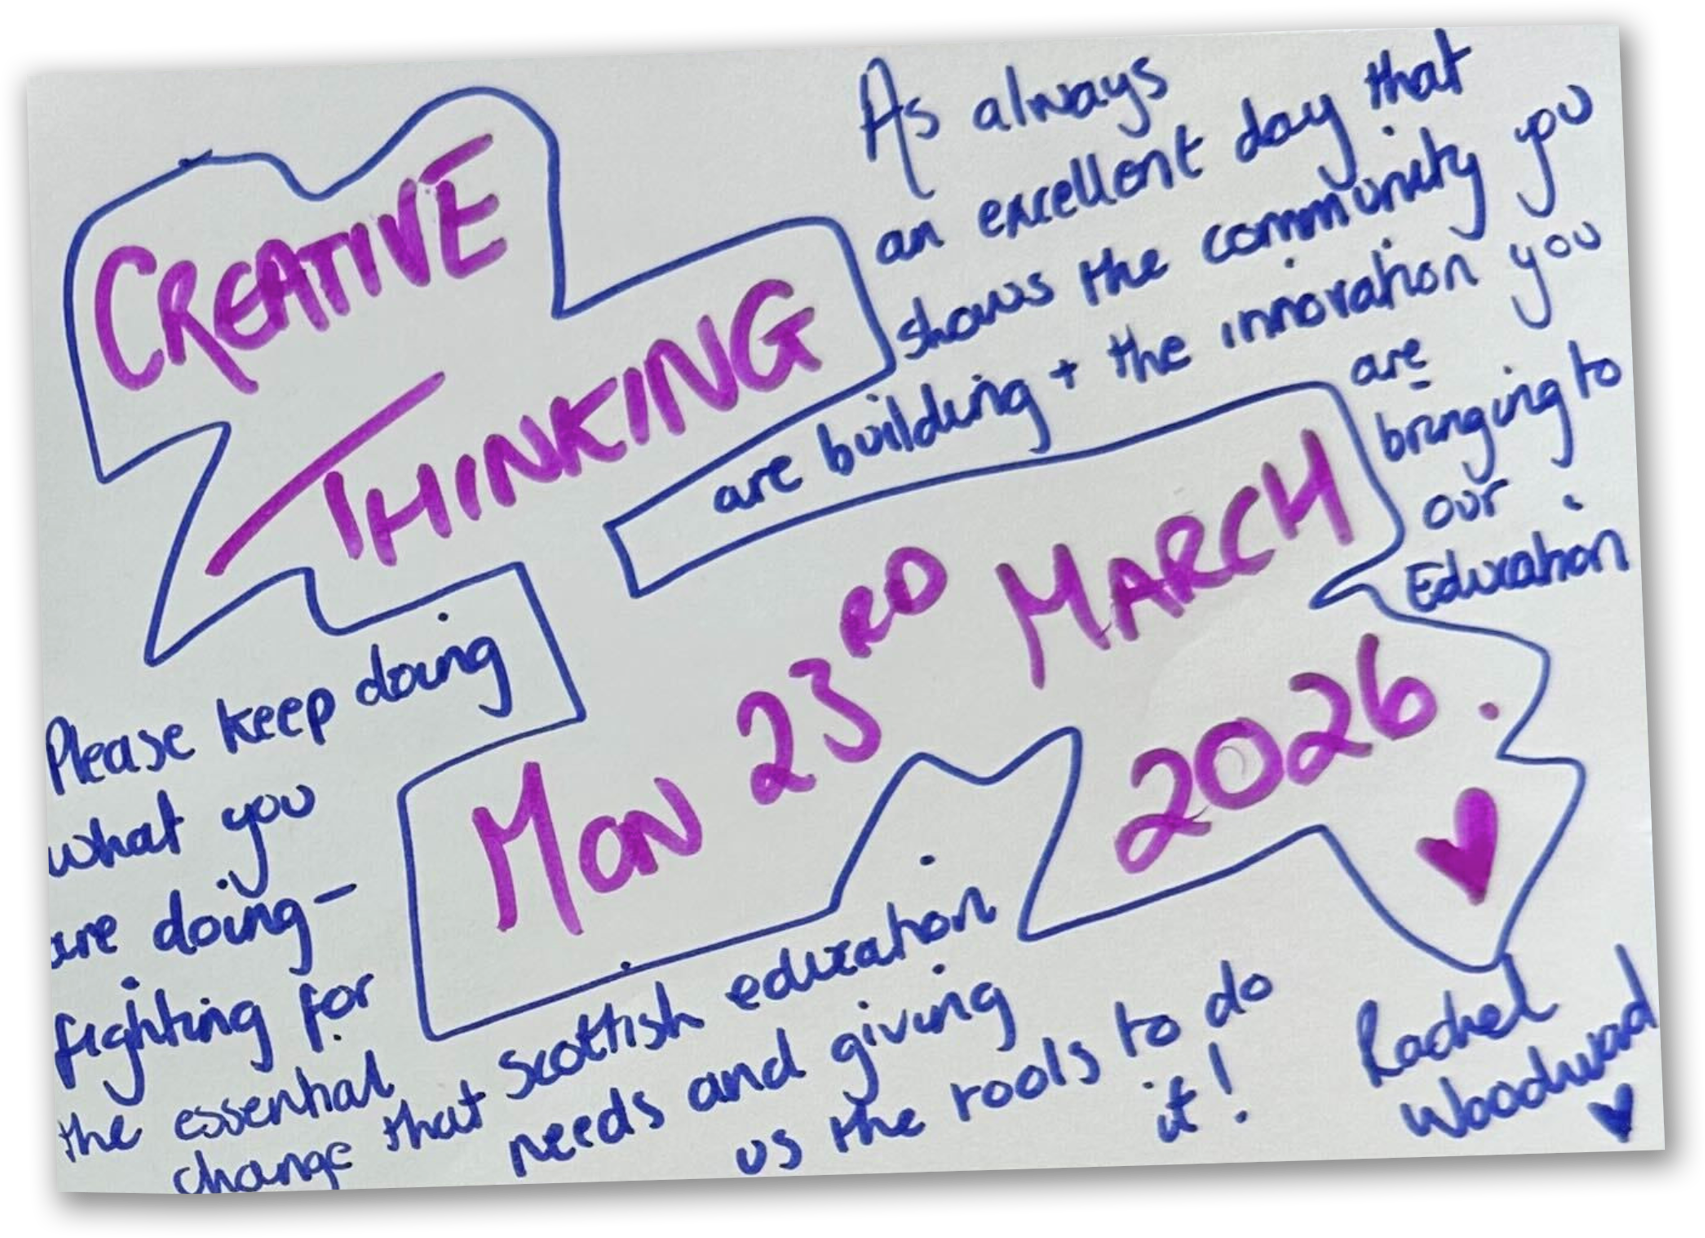 CREATIVE
THINKING
MON 23RD MARCH
2026.
As always
an excellent day that
shows the community you
are building + the innovation you
are
bringing to
our
Education
Please keep doing
what you
are doing –
fighting for
the essential
change that scottish education
needs and giving
us the tools to do
it!
Rachel
Woodward